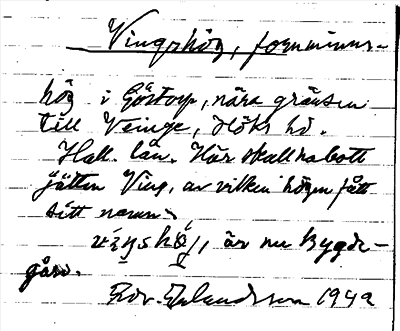 Vingshög, fornminnes-
hög i Göstorp, nära gränsen
till Veinge, Höks hd.
Hall. län. Här skall ha bott
jätten Ving, av vilken högen fått
sitt namn.
är nu Bygde-
gård.
Edv. Erlandsson 1942